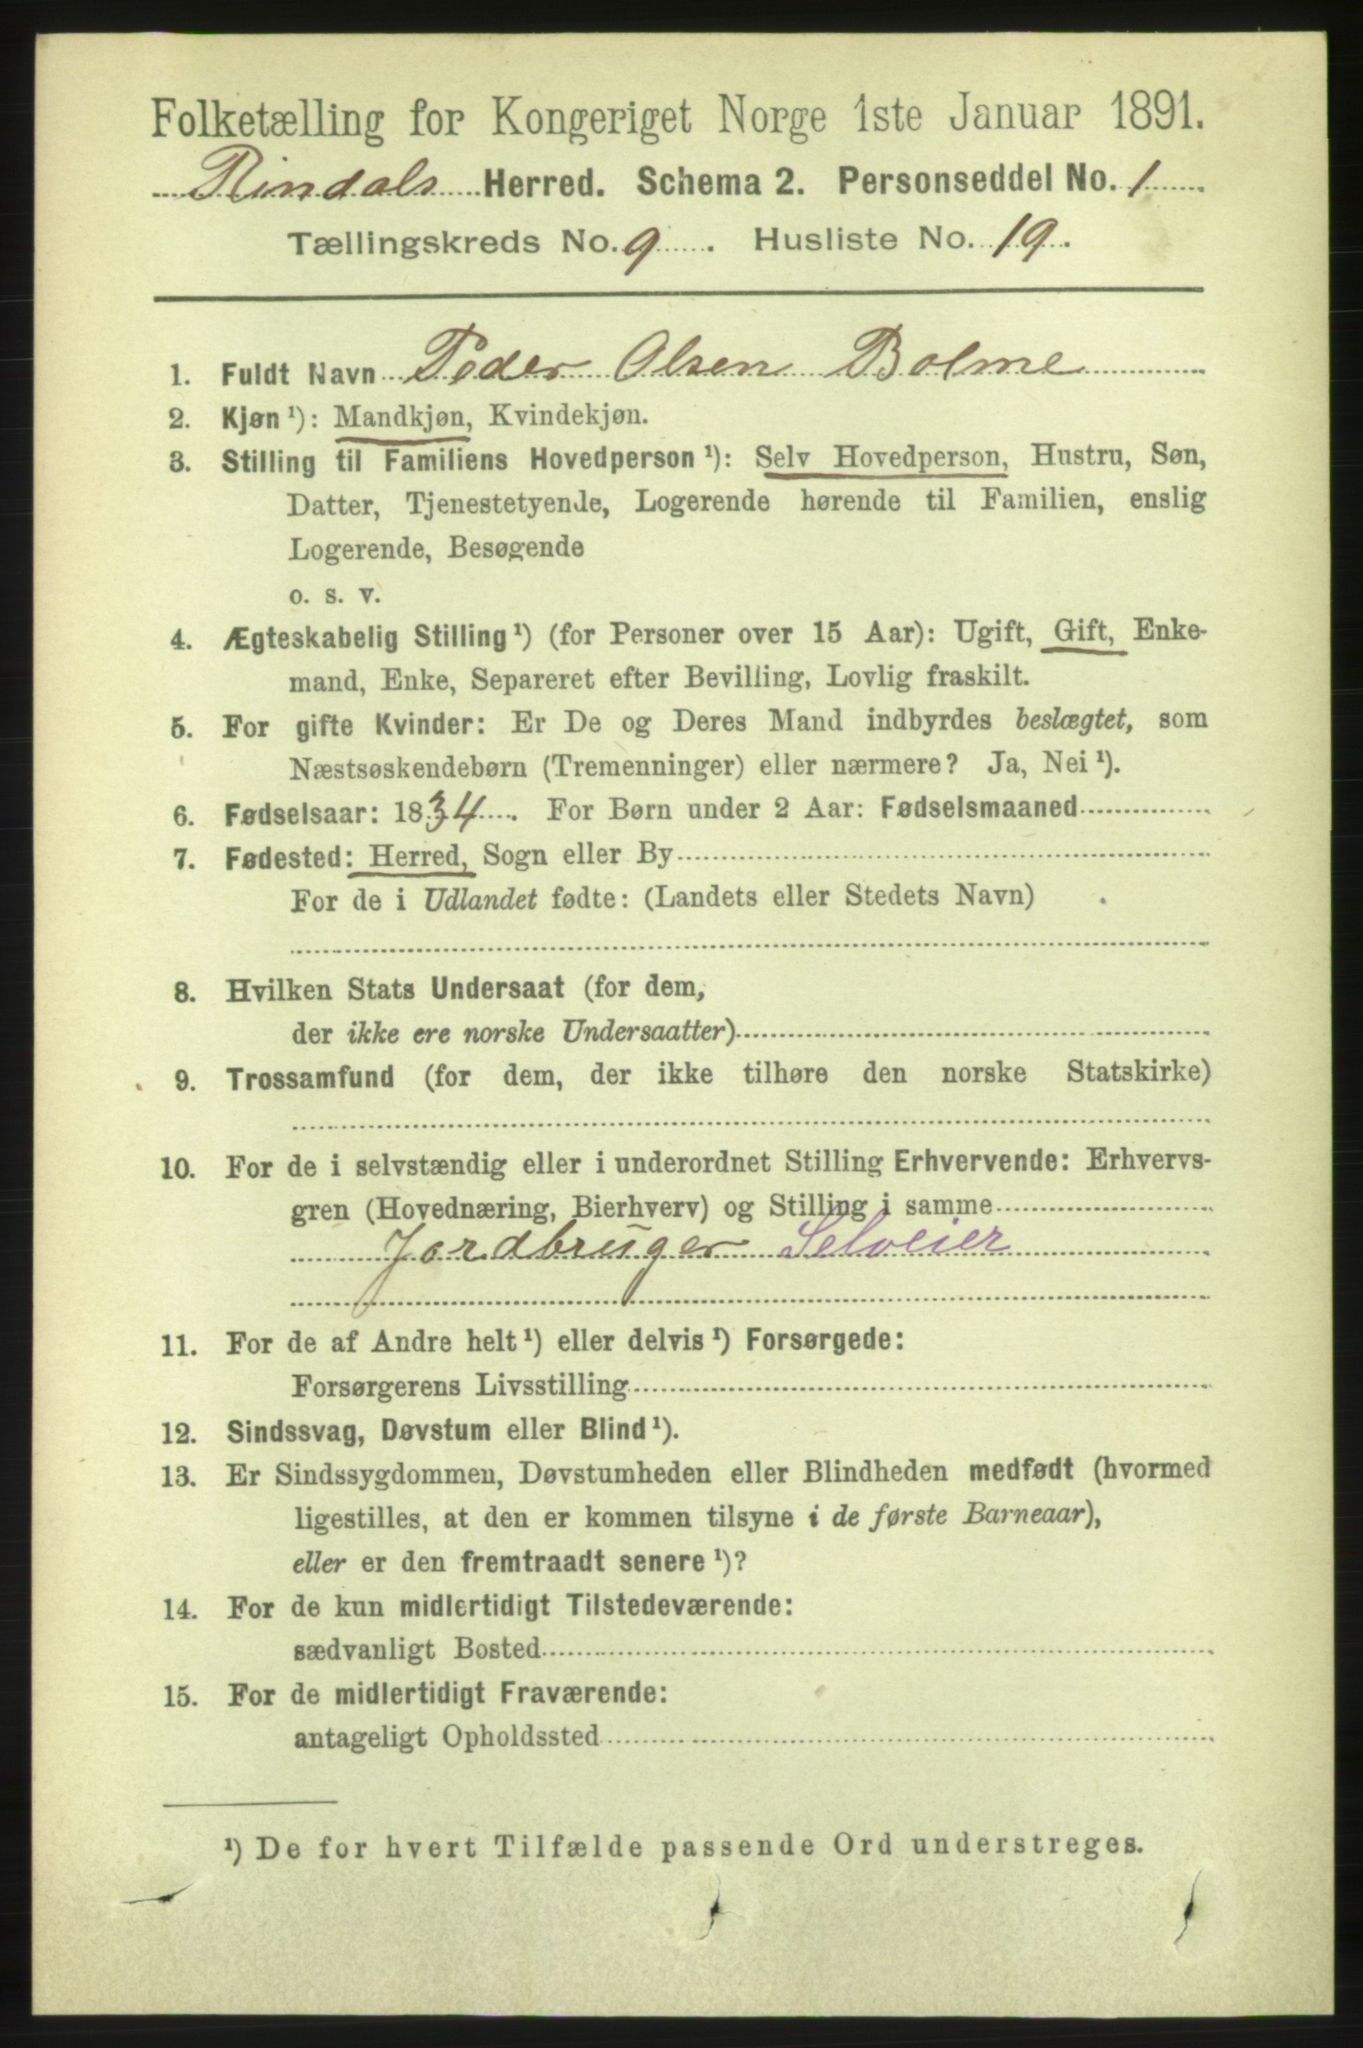 Folketælling for Kongeriget Norge 1ste Januar 1891.
Rindals Herred. Schema 2. Personseddel No. 1
Tællingskreds No. 9. Husliste No. 19.
1. Fuldt Navn Peder Olsen Bolme
2. Kjøn ¹): Mandkjøn, Kvindekjøn.
3. Stilling til Familiens Hovedperson ¹): Selv Hovedperson, Hustru, Søn,
Datter, Tjenestetyende, Logerende hørende til Familien, enslig
Logerende, Besøgende
o. s. v.
4. Ægteskabelig Stilling ¹) (for Personer over 15 Aar): Ugift, Gift, Enke-
mand, Enke, Separeret efter Bevilling, Lovlig fraskilt.
5. For gifte Kvinder: Er De og Deres Mand indbyrdes beslægtet, som
Næstsøskendebørn (Tremenninger) eller nærmere? Ja, Nei ¹).
6. Fødselsaar: 1834. For Børn under 2 Aar: Fødselsmaaned
7. Fødested: Herred, Sogn eller By
For de i Udlandet fødte: (Landets eller Stedets Navn)
8. Hvilken Stats Undersaat (for dem,
der ikke ere norske Undersaatter)
9. Trossamfund (for dem, der ikke tilhøre den norske Statskirke)
10. For de i selvstændig eller i underordnet Stilling Erhvervende: Erhvervs-
gren (Hovednæring, Bierhverv) og Stilling i samme
Jordbruger Selveier
11. For de af Andre helt ¹) eller delvis ¹) Forsørgede:
Forsørgerens Livsstilling
12. Sindssvag, Døvstum eller Blind ¹).
13. Er Sindssygdommen, Døvstumheden eller Blindheden medfødt (hvormed
ligestilles, at den er kommen tilsyne i de første Barneaar),
eller er den fremtraadt senere ¹)?
14. For de kun midlertidigt Tilstedeværende:
sædvanligt Bosted
15. For de midlertidigt Fraværende:
antageligt Opholdssted
¹) De for hvert Tilfælde passende Ord understreges.